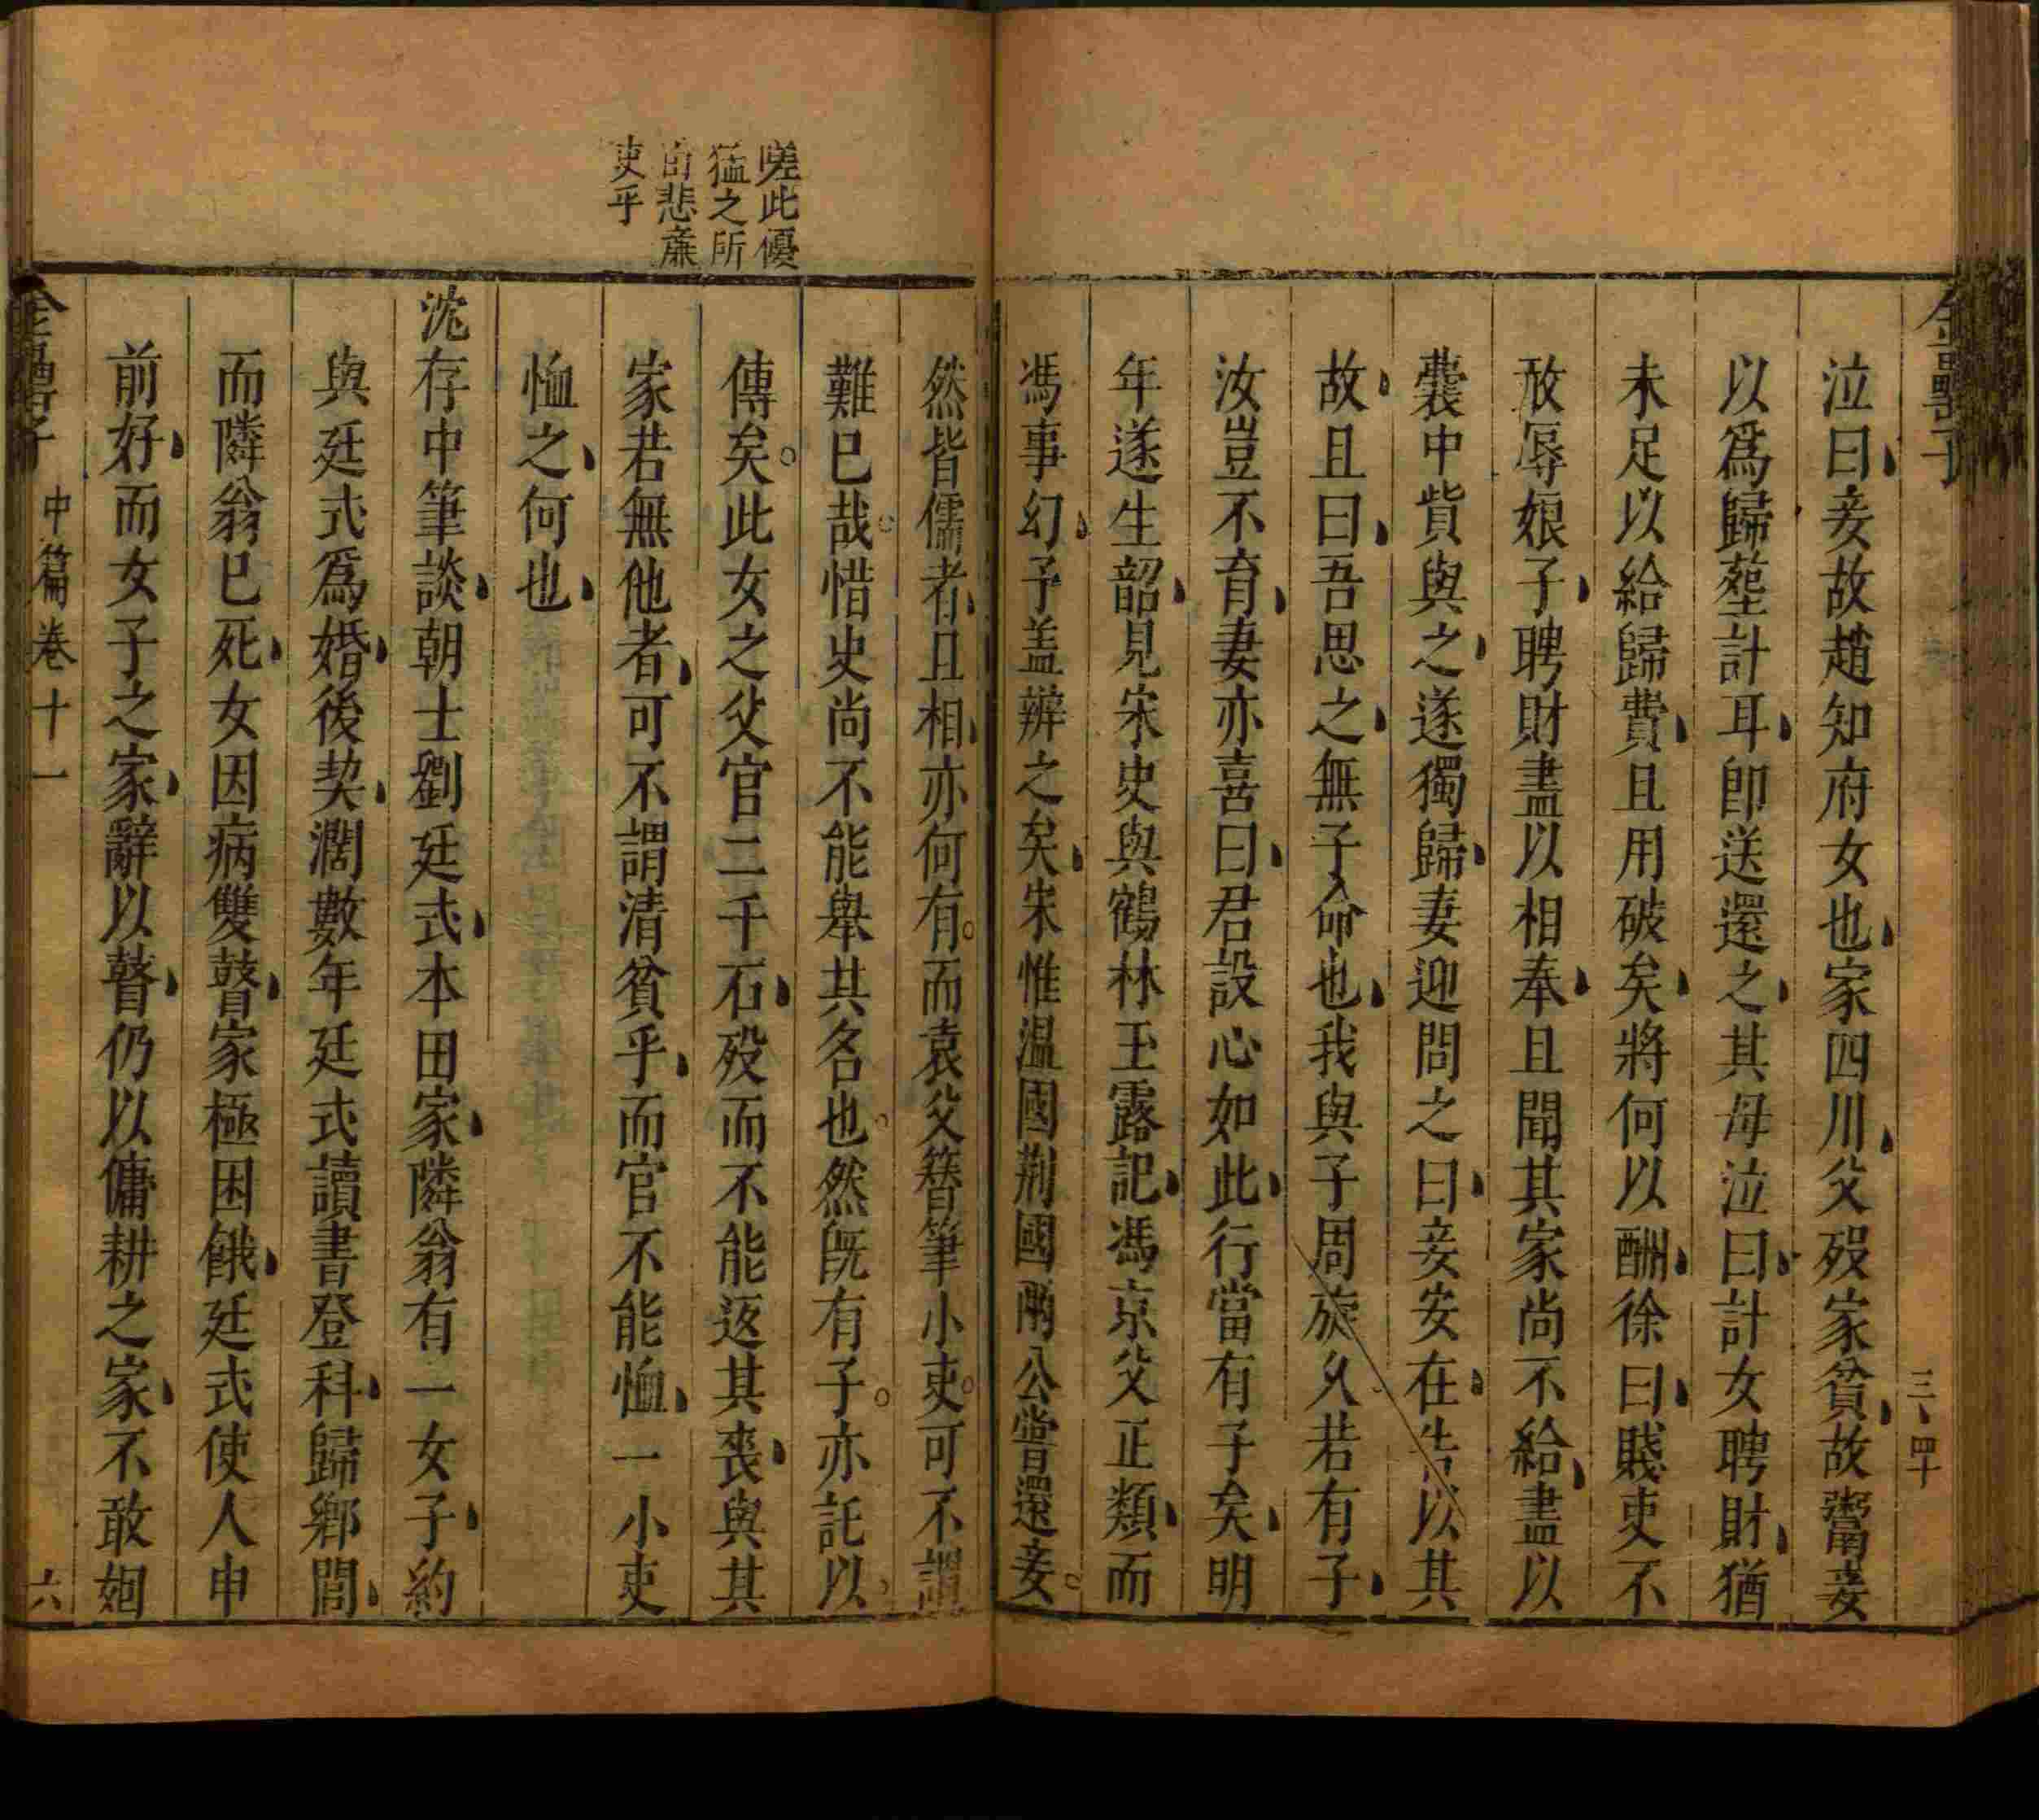 泣曰妾故趙知府女也家四川父歿家貧故鬻妾
以爲歸塟計耳即送還之其母泣曰計女聘財猶
未足以給歸費且用破矣將何以酬徐曰賤吏不
敢辱娘子聘財盡以相奉且聞其家尚不給盡以
囊中貲與之遂獨歸妻迎問之曰妾安在告以其
故且曰吾思之無子命也我與子周旋久若有子
汝豈不育妻亦喜曰君設心如此行當有子矣明
年遂生韶見宋史與鶴林玉露記馮京父正類而
馮事幻予盖辨之矣宋惟温國荆國兩公嘗還妾
然皆儒者且相亦何有而袁父簪筆小吏可不謂
難已哉惜史尚不能舉其名也然既有子亦託以
傳矣此女之父官二千石歿而不能返其喪與其
家若無他者可不謂清貧乎而官不能恤一小吏
恤之何也
沈存中筆談朝士劉廷式本田家隣翁有一女子約
與廷式爲婚後契濶數年廷式讀書登科歸鄉閭
而隣翁已死女因病雙瞽家極困餓廷式使人申
前好而女子之家辭以瞽仍以傭耕之家不敢姻
中篇卷十一
六
嗟此優
猛之所
㠯悲廉
吏乎
三四十